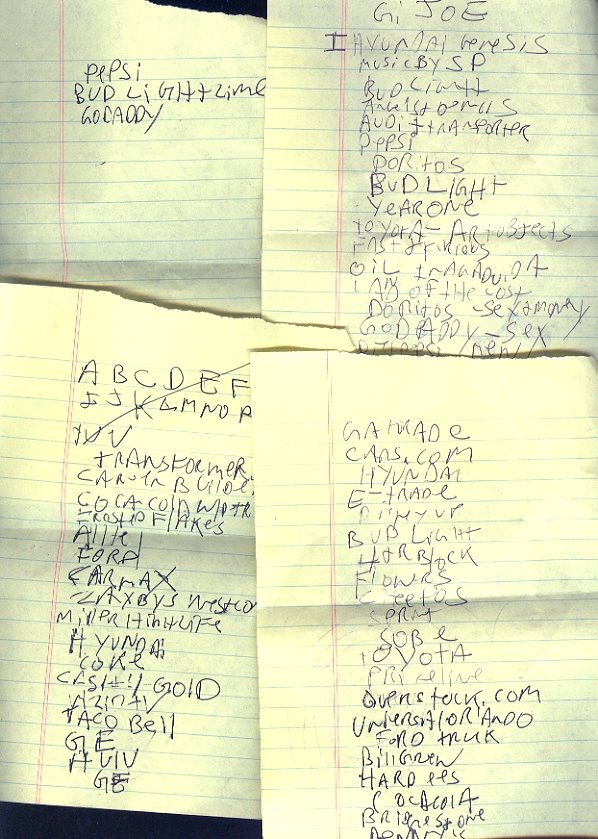 PEPSI
BUD LIGHT LIME
GODADDY
Gi JOE
I HYUNDAI Genesis
MUSIC BY SP
BUD LIGHT
AUDI TRANSPORTER
PEPSI
DORITOS
BUD LIGHT
YEAR ONE
TOYOTA - ARTOBJECTS
FAST & FURIOUS
OIL
LAND OF THE LOST
DORITOS - SEX & MONEY
GODADDY - SEX
A B C D E F
I J K L M N O P
TRANSFORMER
COCA COLA
FROSTED FLAKES
Alltel
FORD
CARMAX
ZAXBYS
HYUNDAI
COKE
CASH 4 GOLD
TACO Bell
GE
HULU
GE
GATORADE
CARS.COM
HYUNDAI
E-TRADE
BUD LIGHT
H&R BLOCK
FLOWERS
CHEETOS
SPRINT
SOBE
TOYOTA
PRICELINE
OVERSTOCK.COM
UNIVERSAL ORLANDO
FORD TRUCK
HARDEES
COCACOLA
BRIGESTONE